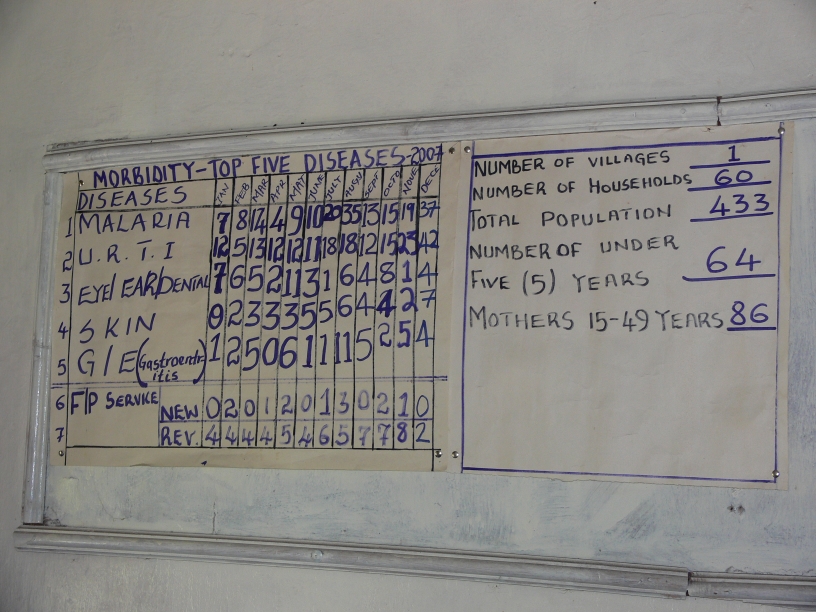 MORBIDITY-TOP FIVE DISEASES-2007
DISEASES JAN FEB MAR APR MAY JUNE JULY AUGU SEPT OCTO NOVE DECE
1 MALARIA 7 8 14 4 9 10 20 35 13 15 19 37
2 U.R.T.I 12 5 13 12 12 11 18 18 12 15 23 42
3 EYE/EAR/DENTAL 7 6 5 2 11 3 1 6 4 8 1 4
4 SKIN 0 2 3 3 3 5 5 6 4 4 2 7
5 G/E (Gastroentr-
itis) 1 2 5 0 6 1 1 11 5 2 5 4
6 F/P SERVICE NEW 0 2 0 1 2 0 1 3 0 2 1 0
7 REV. 4 4 4 4 5 4 6 5 7 7 8 2
NUMBER OF VILLAGES 1
NUMBER OF HOUSEHOLDS 60
TOTAL POPULATION 433
NUMBER OF UNDER
FIVE (5) YEARS 64
MOTHERS 15-49 YEARS 86